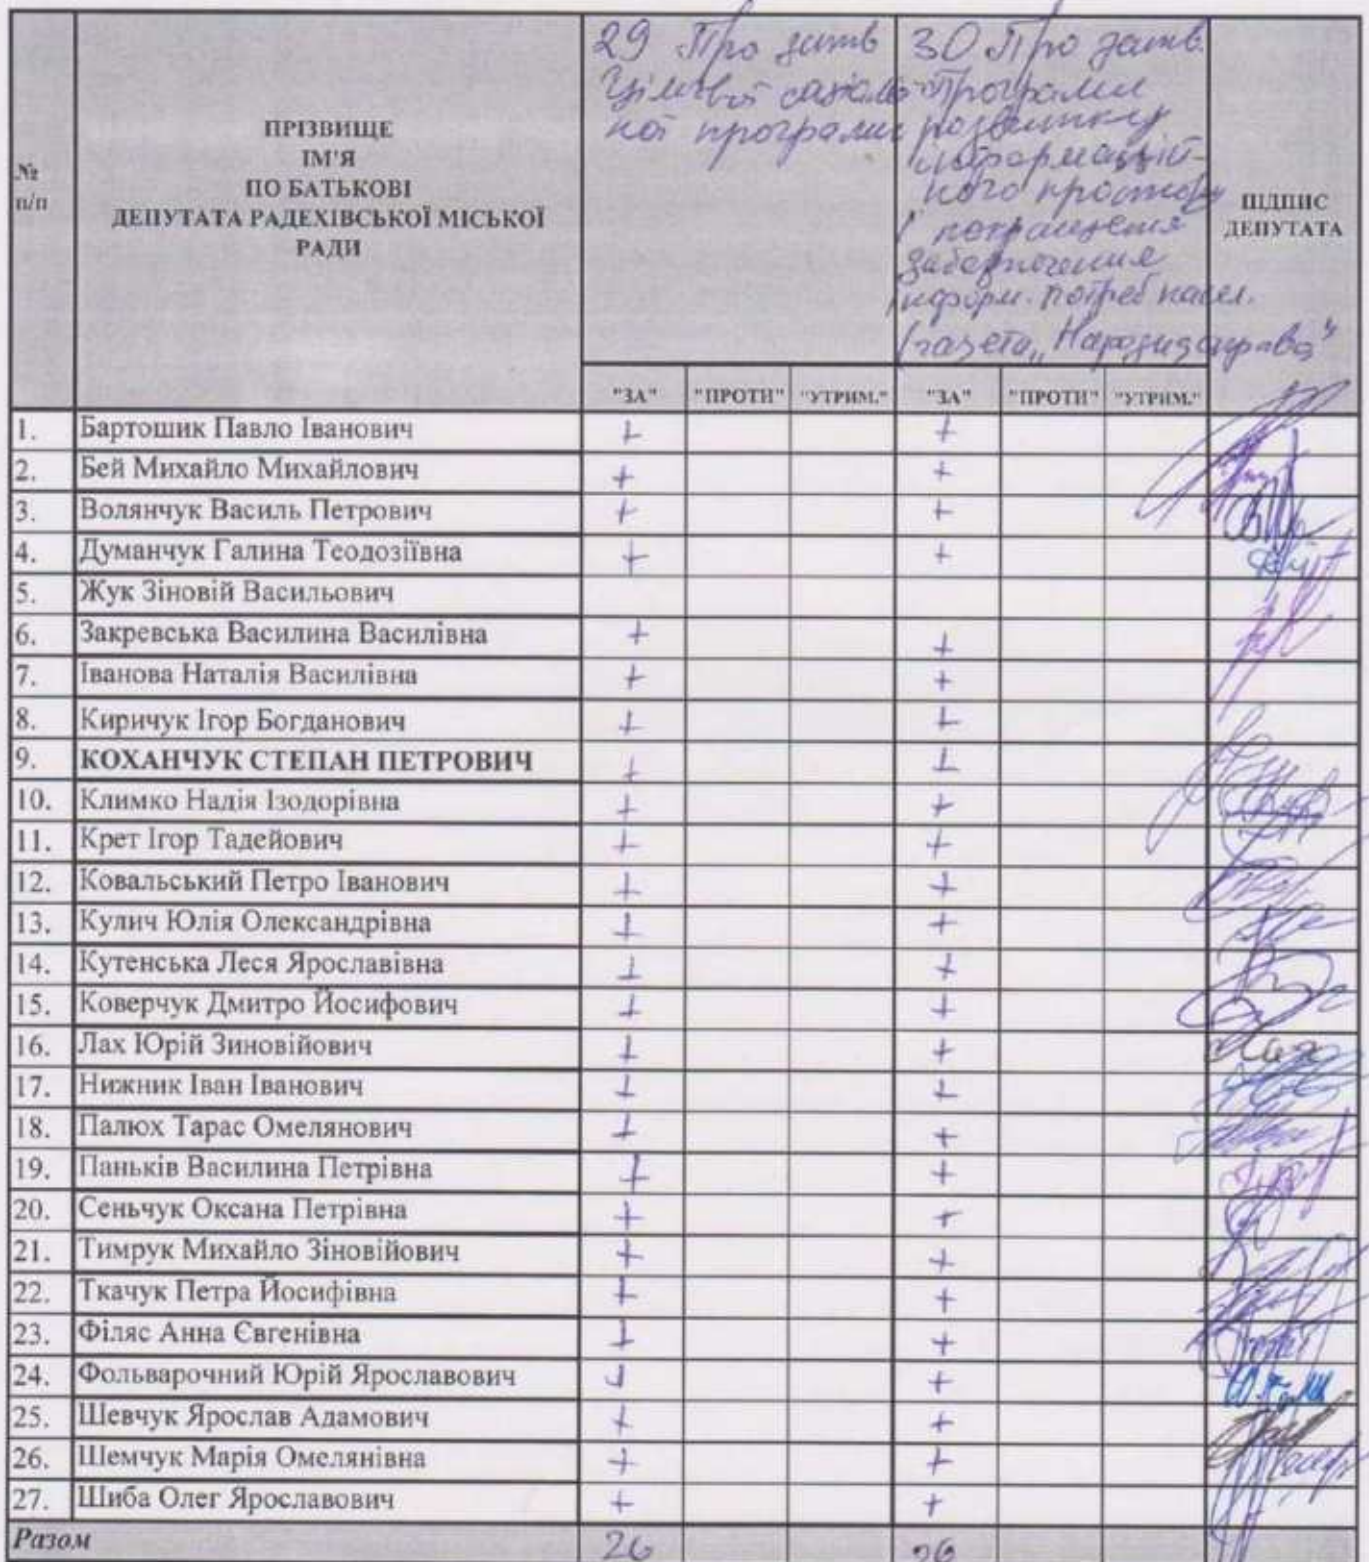 №
п/п
ПРІЗВИЩЕ
ІМ'Я
ПО БАТЬКОВІ
ДЕПУТАТА РАДЕХІВСЬКОЇ МІСЬКОЇ
РАДИ
29 Про затв
Цільової соціаль
ної програми
30 Про затв.
Програми
розвитку
інформацій-
ного простору
і покращення
забезпечення
інформ. потреб насел.
(газета „Народна справа"
ПІДПИС
ДЕПУТАТА
"ЗА" "ПРОТИ" "УТРИМ." "ЗА" "ПРОТИ" "УТРИМ."
1. Бартошик Павло Іванович + +
2. Бей Михайло Михайлович + +
3. Волянчук Василь Петрович + +
4. Думанчук Галина Теодозіївна + +
5. Жук Зіновій Васильович
6. Закревська Василина Василівна + +
7. Іванова Наталія Василівна + +
8. Киричук Ігор Богданович + +
9. КОХАНЧУК СТЕПАН ПЕТРОВИЧ + +
10. Климко Надія Ізодорівна + +
11. Крет Ігор Тадейович + +
12. Ковальський Петро Іванович + +
13. Кулич Юлія Олександрівна + +
14. Кутенська Леся Ярославівна + +
15. Коверчук Дмитро Йосифович + +
16. Лах Юрій Зиновійович + +
17. Нижник Іван Іванович + +
18. Палюх Тарас Омелянович + +
19. Паньків Василина Петрівна + +
20. Сеньчук Оксана Петрівна + +
21. Тимрук Михайло Зіновійович + +
22. Ткачук Петра Йосифівна + +
23. Філяс Анна Євгенівна + +
24. Фольварочний Юрій Ярославович + +
25. Шевчук Ярослав Адамович + +
26. Шемчук Марія Омелянівна + +
27. Шиба Олег Ярославович + +
Разом 26 26